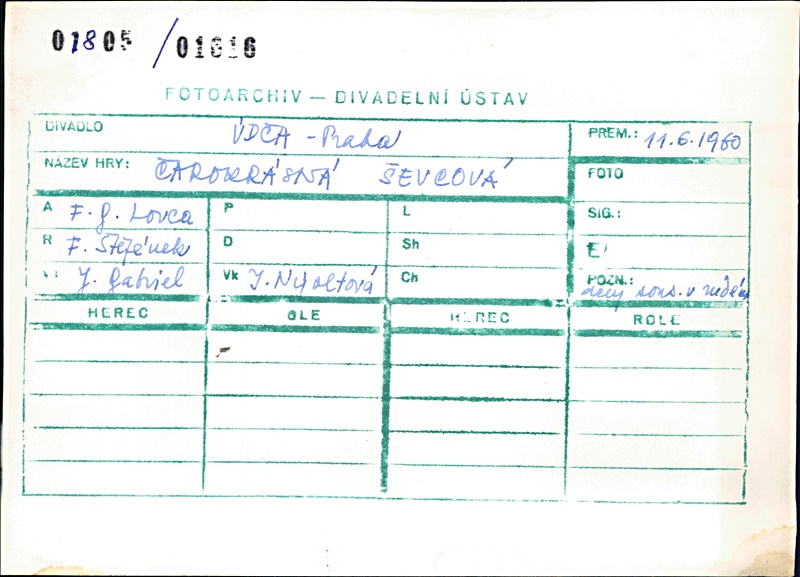 01805 / 01816
FOTOARCHIV — DIVADELNÍ ÚSTAV
DIVADLO ÚDČA - Praha PREM.: 11.6.1960
NÁZEV HRY: ČAROKRÁSNÁ ŠEVCOVÁ FOTO
A F. G. Lorca P L SIG.:
R F. Štěpánek D Sh E/
J. Gabriel Vk J. Nyoltová Ch POZN.:
HEREC OLE HEREC ROLE